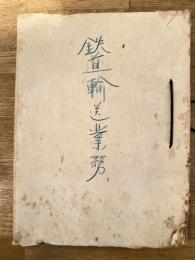 鉄道輸送業務